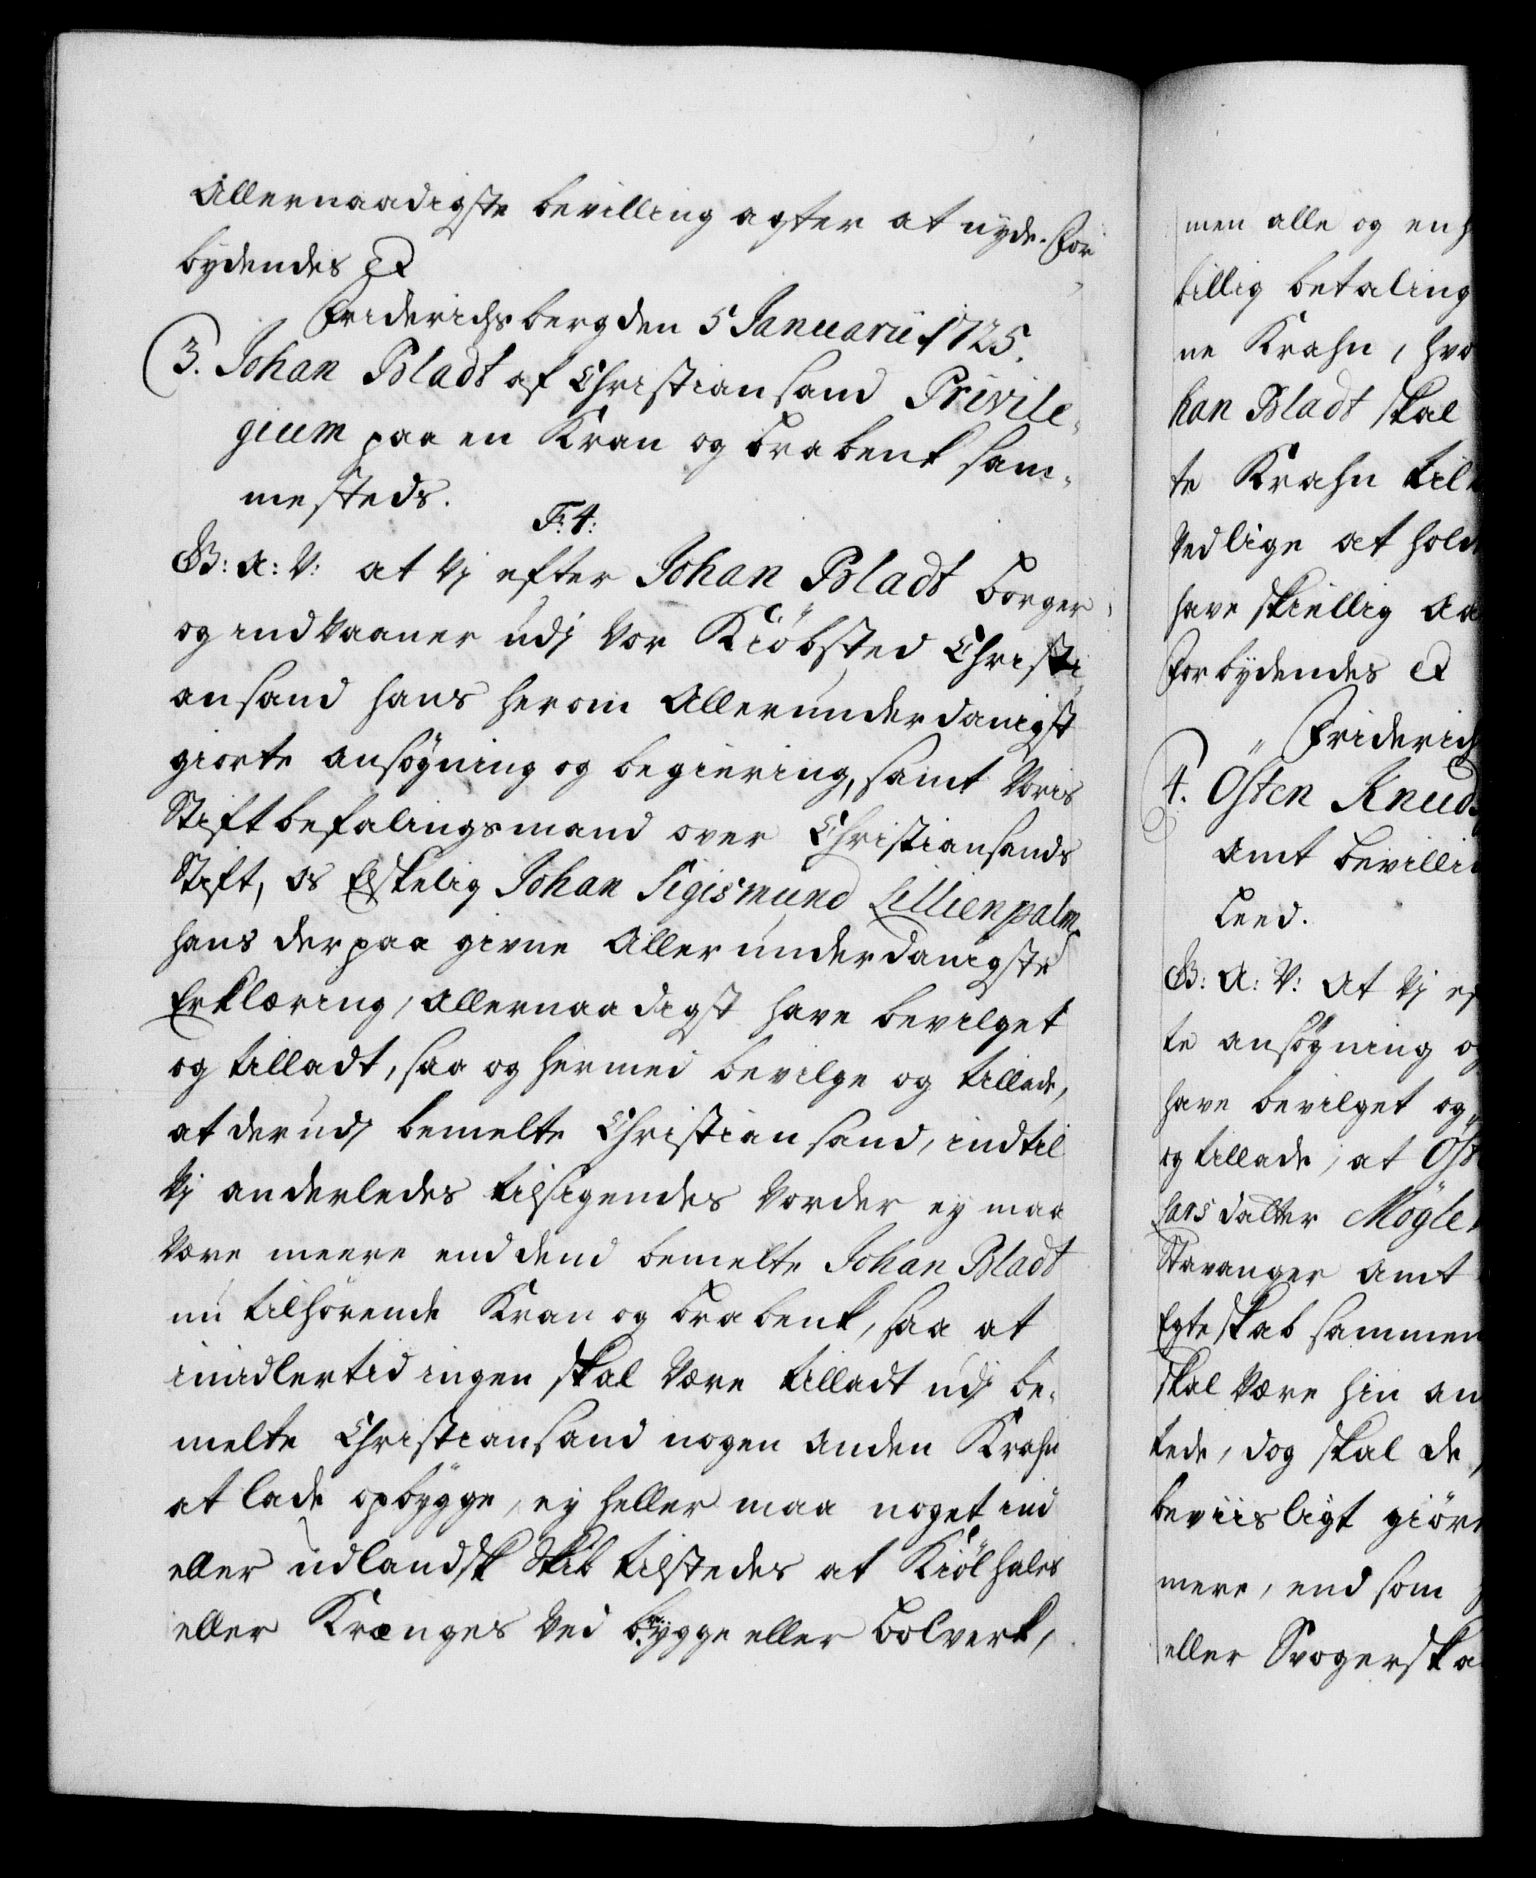 Allernaadigste bevilling agter at nyde. For
bydendes &
Friderichsberg den 5 Januarii 1725.
3. Johan Bladt af Christiansand Privile-
gium paa en Kran og Brabenk sam-
mesteds.
F: 4:
G: A: V: at Vj efter Johan Bladt Borger
og indvaaner udj Vor Kiöbsted Christi
ansand hans herom Allerunderdanigst
giorte ansøgning og begiering, samt Voris
Stiftbefalingsmand over Christiansands
Stift, Os Elskelig Johan Sigismund Lillienpalm
hans derpaa givne Allerunderdanigste
Erklæring, Allernaadigst have bevilget
og tilladt, saa og hermed bevilge og tillade,
at der udj bemelte Christiansand, indtil
Vj anderledes tilsigendes Vorder ey maa
Være meere end dend bemelte Johan Bladt
nu tilhörende Kran og Brabenk, saa at
imidlertid ingen skal Være tilladt udj be-
melte Christiansand nogen anden Krahn
at lade opbygge, ey heller maa noget ind
eller udlandsk Skib tilstedes at Kiölhales
eller Krænges Ved brygge eller Bolverk,
men alle og en h
billig betaling
ne Krahn, hvo
han Bladt skal
te Krahn til
Vedlige at hold
have skiellig Aa
Forbydendes &
Friderich
4. Osten Knuds
Amt bevilli
Leed.
G: A: V: At Vj ef
te ansøgning og
have bevilget og
og tillade, at Ost
Lars datter Mögle
Stavanger Amt
Egteskab sammen
skal Være hin an
tede, dog skal de
beviisligt giöre
mere, end som
eller Svogerska